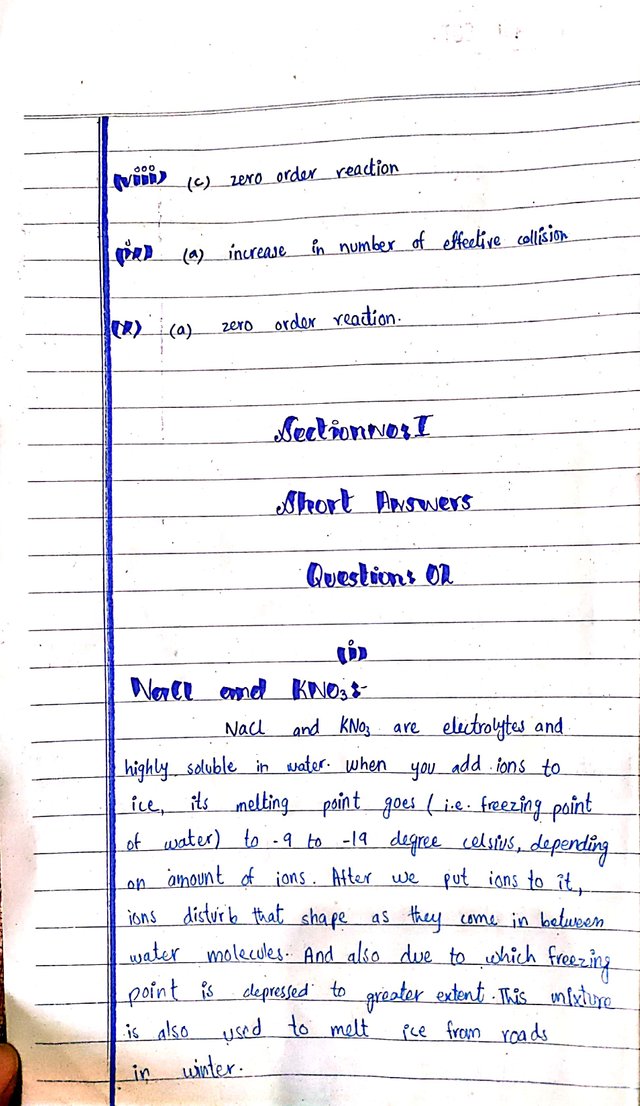 (viii) (c) zero order reaction
(ix) (a) increase in number of effective collision
(x) (a) zero order reaction.
Section No: I
Short Answers
Question: 02
(i)
NaCl and KNO₃:-
NaCl and KNO₃ are electrolytes and
highly soluble in water. when you add ions to
ice, its melting point goes ( i.e. freezing point
of water) to -9 to -19 degree celsius, depending
on amount of ions. After we put ions to it,
ions disturb that shape as they come in between
water molecules. And also due to which freezing
point is depressed to greater extent. This mixture
is also used to melt ice from roads
in winter.